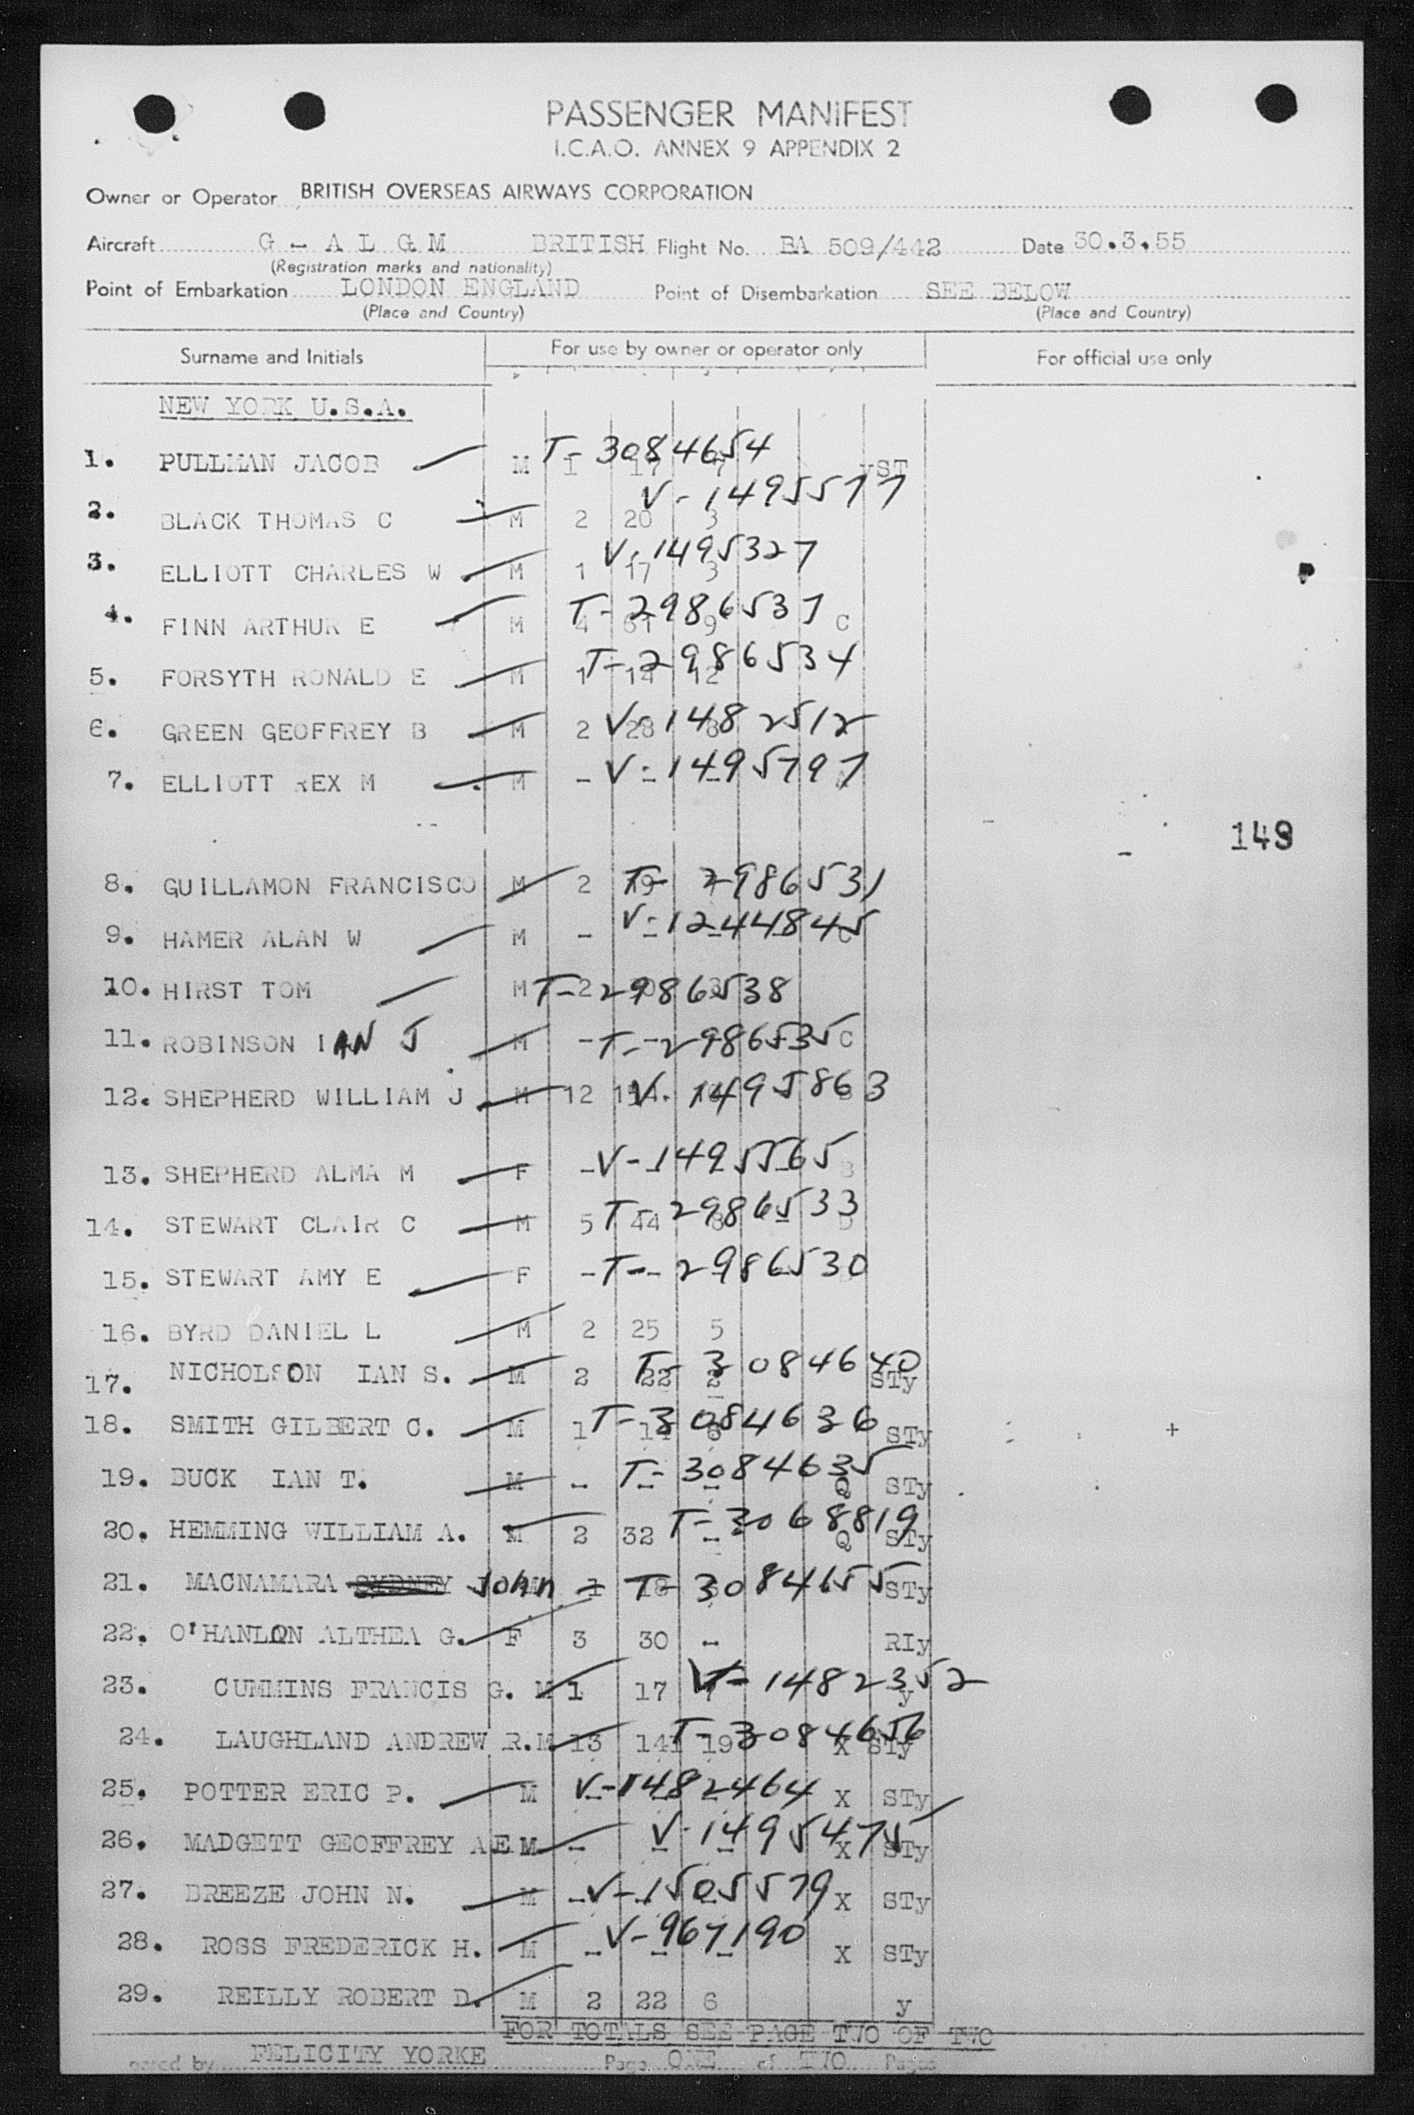 PASSENGER MANIFEST
I.C.A.O. ANNEX 9 APPENDIX 2
Owner or Operator BRITISH OVERSEAS AIRWAYS CORPORATION
Aircraft G - A L G M BRITISH Flight No. BA 509/442 Date 30.3.55
(Registration marks and nationality)
Point of Embarkation LONDON ENGLAND Point of Disembarkation SEE BELOW
(Place and Country) (Place and Country)
Surname and Initials For use by owner or operator only For official use only
NEW YORK U.S.A.
1. PULLMAN JACOB M 1 17 7 T-3084654 yST
2. BLACK THOMAS C M 2 20 3 V-1495577
3. ELLIOTT CHARLES W M 1 17 3 V-1495327
4. FINN ARTHUR E M 4 61 9 T-2986537 C
5. FORSYTH RONALD E M 1 14 12 T-2986534
6. GREEN GEOFFREY B M 2 28 8 V-1482512
7. ELLIOTT REX M M - - - V-1495797
149
8. GUILLAMON FRANCISCO M 2 19 T- 2986531
9. HAMER ALAN W M - - - V-1244845 C
10. HIRST TOM M 2 T-2986538
11. ROBINSON IAN J M - - - T-2986535 C
12. SHEPHERD WILLIAM J M 12 V-1495863
13. SHEPHERD ALMA M F - - - V-1495565 B
14. STEWART CLAIR C M 5 44 8 T-2986533 D
15. STEWART AMY E F - - - T-2986530
16. BYRD DANIEL L M 2 25 5
17. NICHOLSON IAN S. M 2 22 2 T-3084640 STy
18. SMITH GILBERT C. M 1 14 6 T-3084636 STy
19. BUCK IAN T. M - - - T-3084635 Q STy
20. HEMMING WILLIAM A. M 2 32 - T-3068819 Q STy
21. MACNAMARA SYDNEY John M 1 18 T-3084655 STy
22. O'HANLON ALTHEA G. F 3 30 - RIy
23. CUMMINS FRANCIS G. M 1 17 7 V-1482352 y
24. LAUGHLAND ANDREW R. M 13 141 19 T-3084656 X STy
25. POTTER ERIC P. M - - - V-1482464 X STy
26. MADGETT GEOFFREY A E M - - - V-1495475 X STy
27. BREEZE JOHN N. M - - - V-1505579 X STy
28. ROSS FREDERICK H. M - - - V-967190 X STy
29. REILLY ROBERT D. M 2 22 6 y
FOR TOTALS SEE PAGE TWO OF TWO
ared by FELICITY YORKE Page ONE of TWO Pages